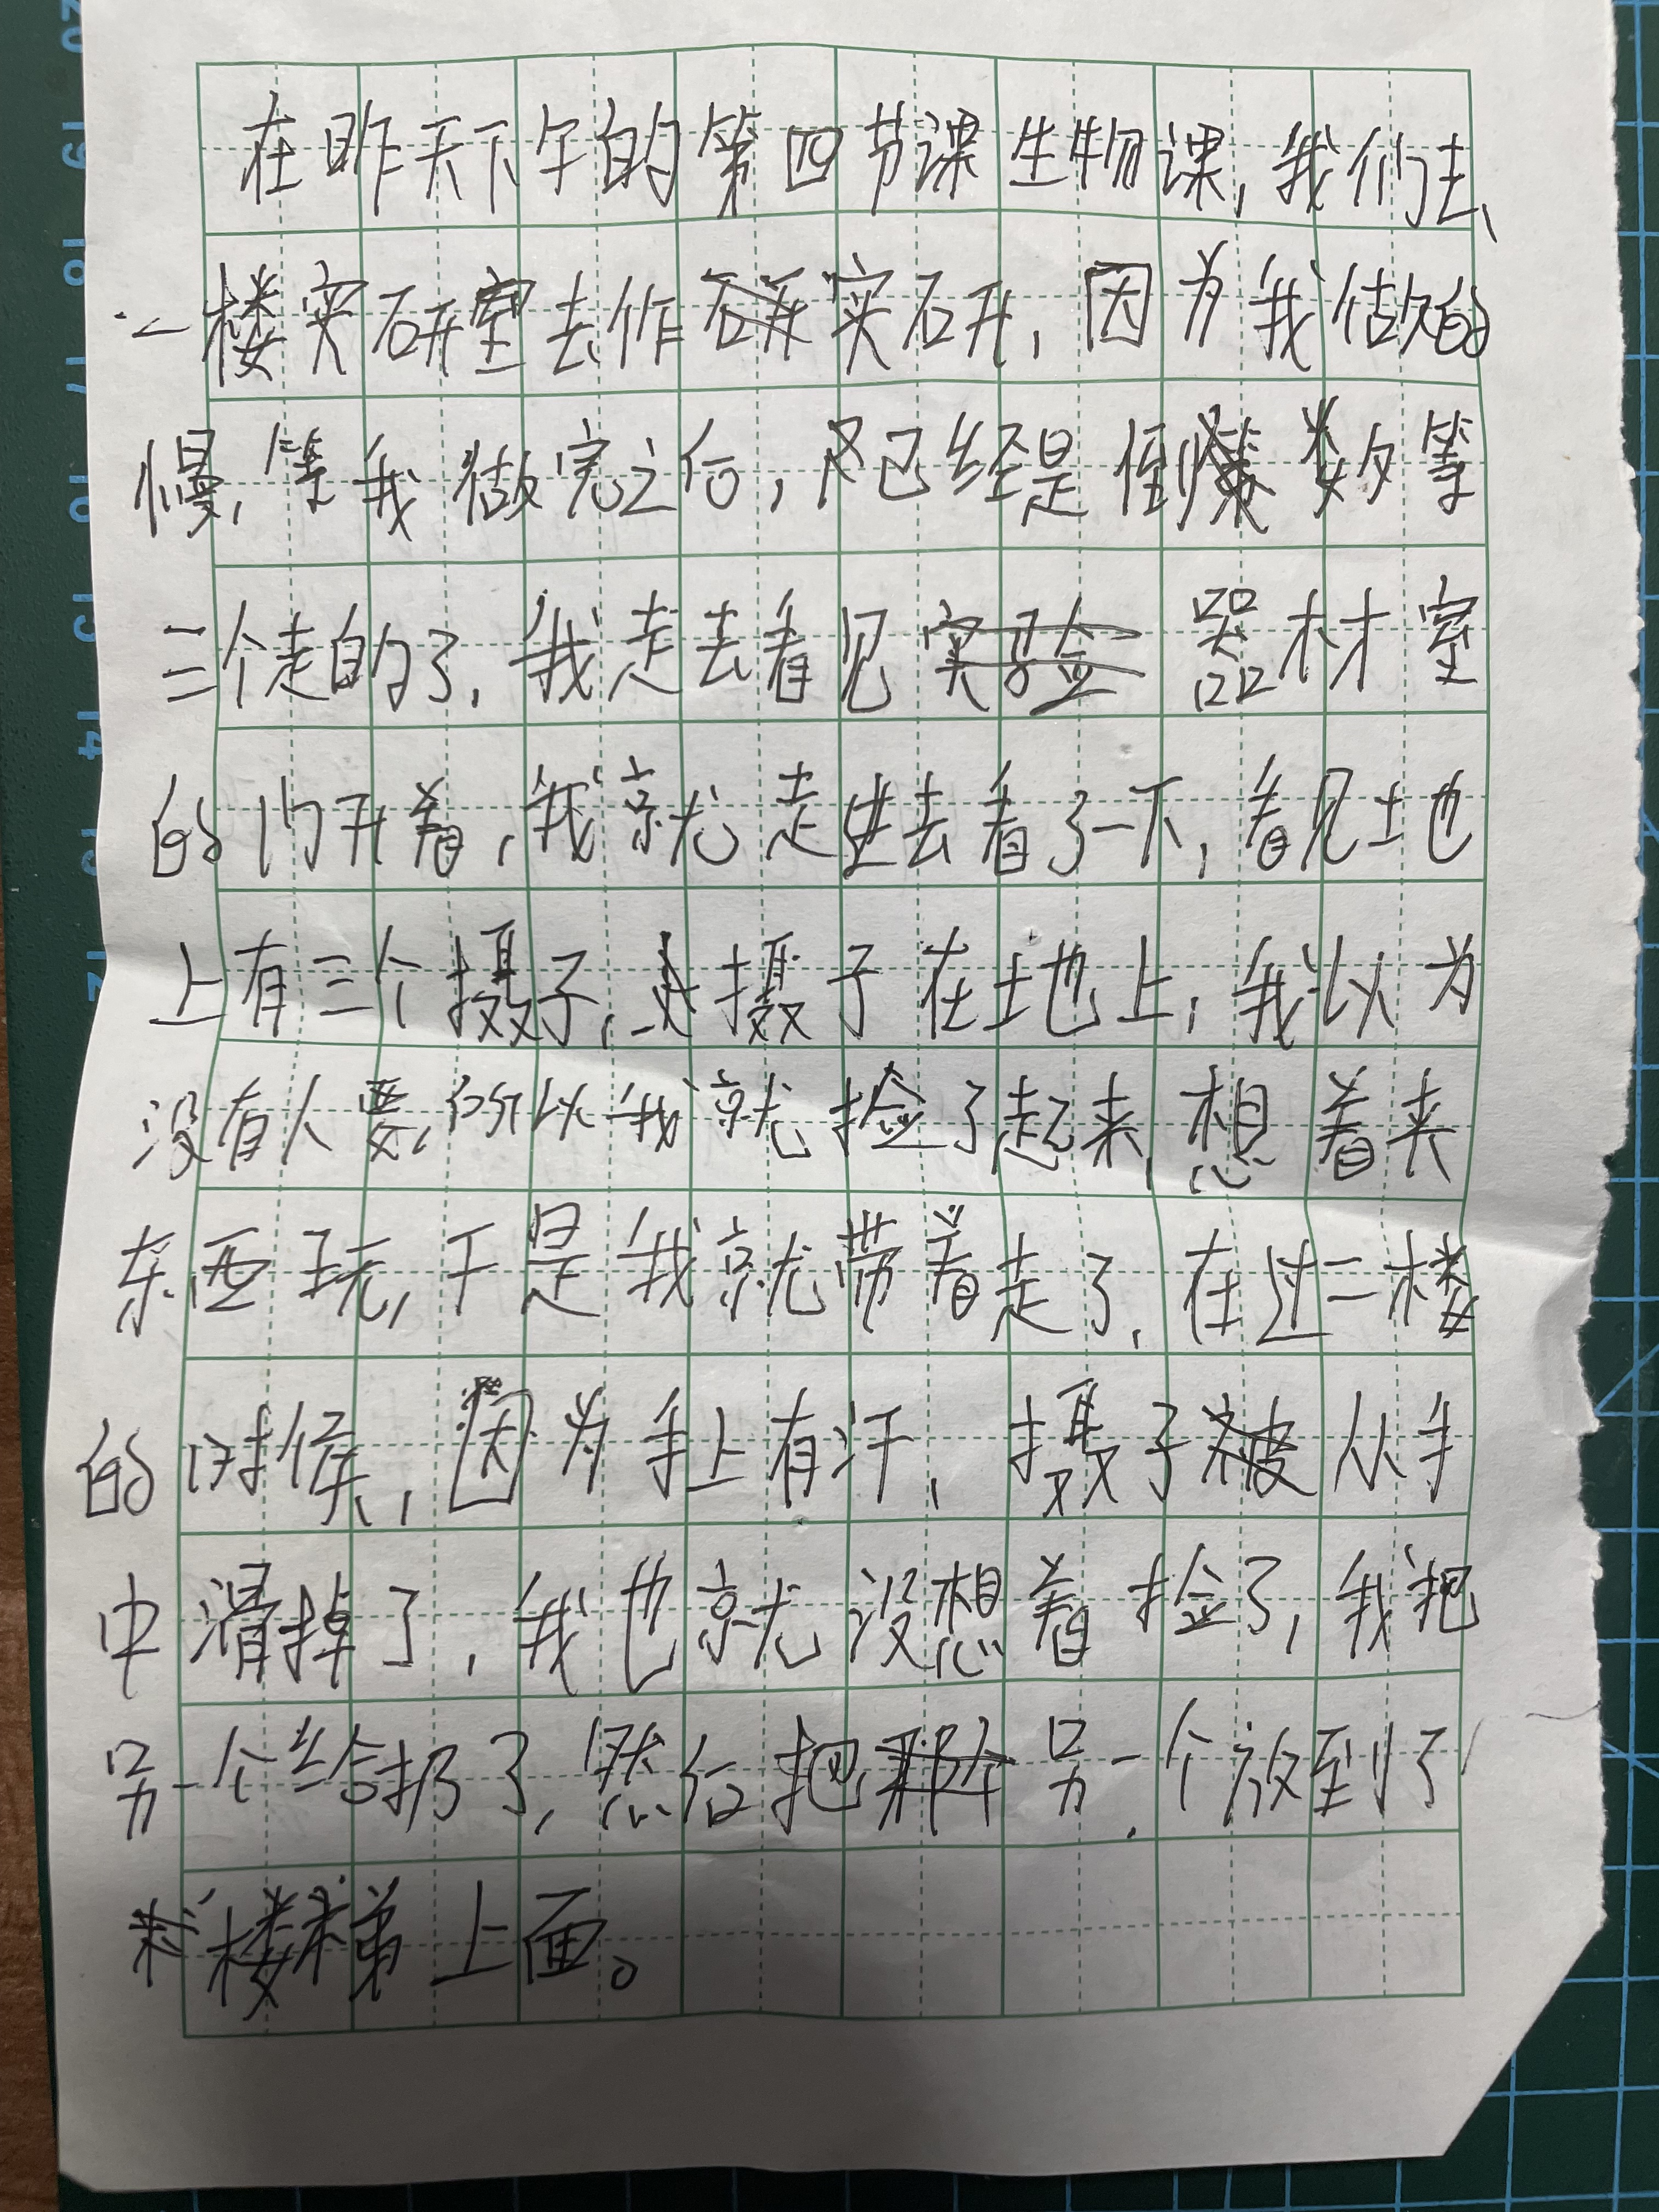 在昨天下午的第四节课生物课,我们去
一楼实研室去作实研,因为我做的
慢,等我做完之后,已经是倒数第
三个走的了,我走去看见器材室
的门开着,我就走进去看了一下,看见地
上有三个摄子,摄子在地上,我以为
没有人要,所以我就捡了起来,想着来
东西玩,于是我就带着走了,在过二楼
的时候,因为手上有汗,摄子从手
中滑掉了,我也就没想着捡了,我把
另一个给扔了,然后把另一个放到了
楼梯上面。